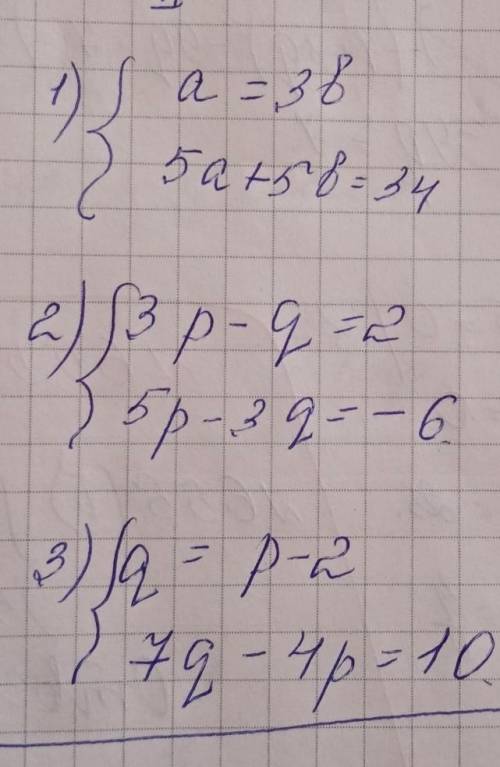 1) { a = 3b
5a + 5b = 34
2) { 3p - q = 2
5p - 3q = -6
3) { q = p - 2
7q - 4p = 10